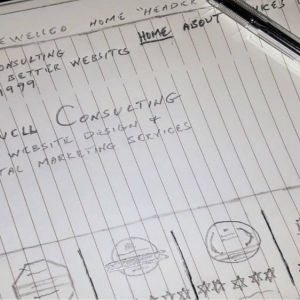 EWELLCO HOME "HEADER
HOME ABOUT
CONSULTING
BETTER WEBSITES
1999
CONSULTING
WEBSITE DESIGN &
TAL MARKETING SERVICES